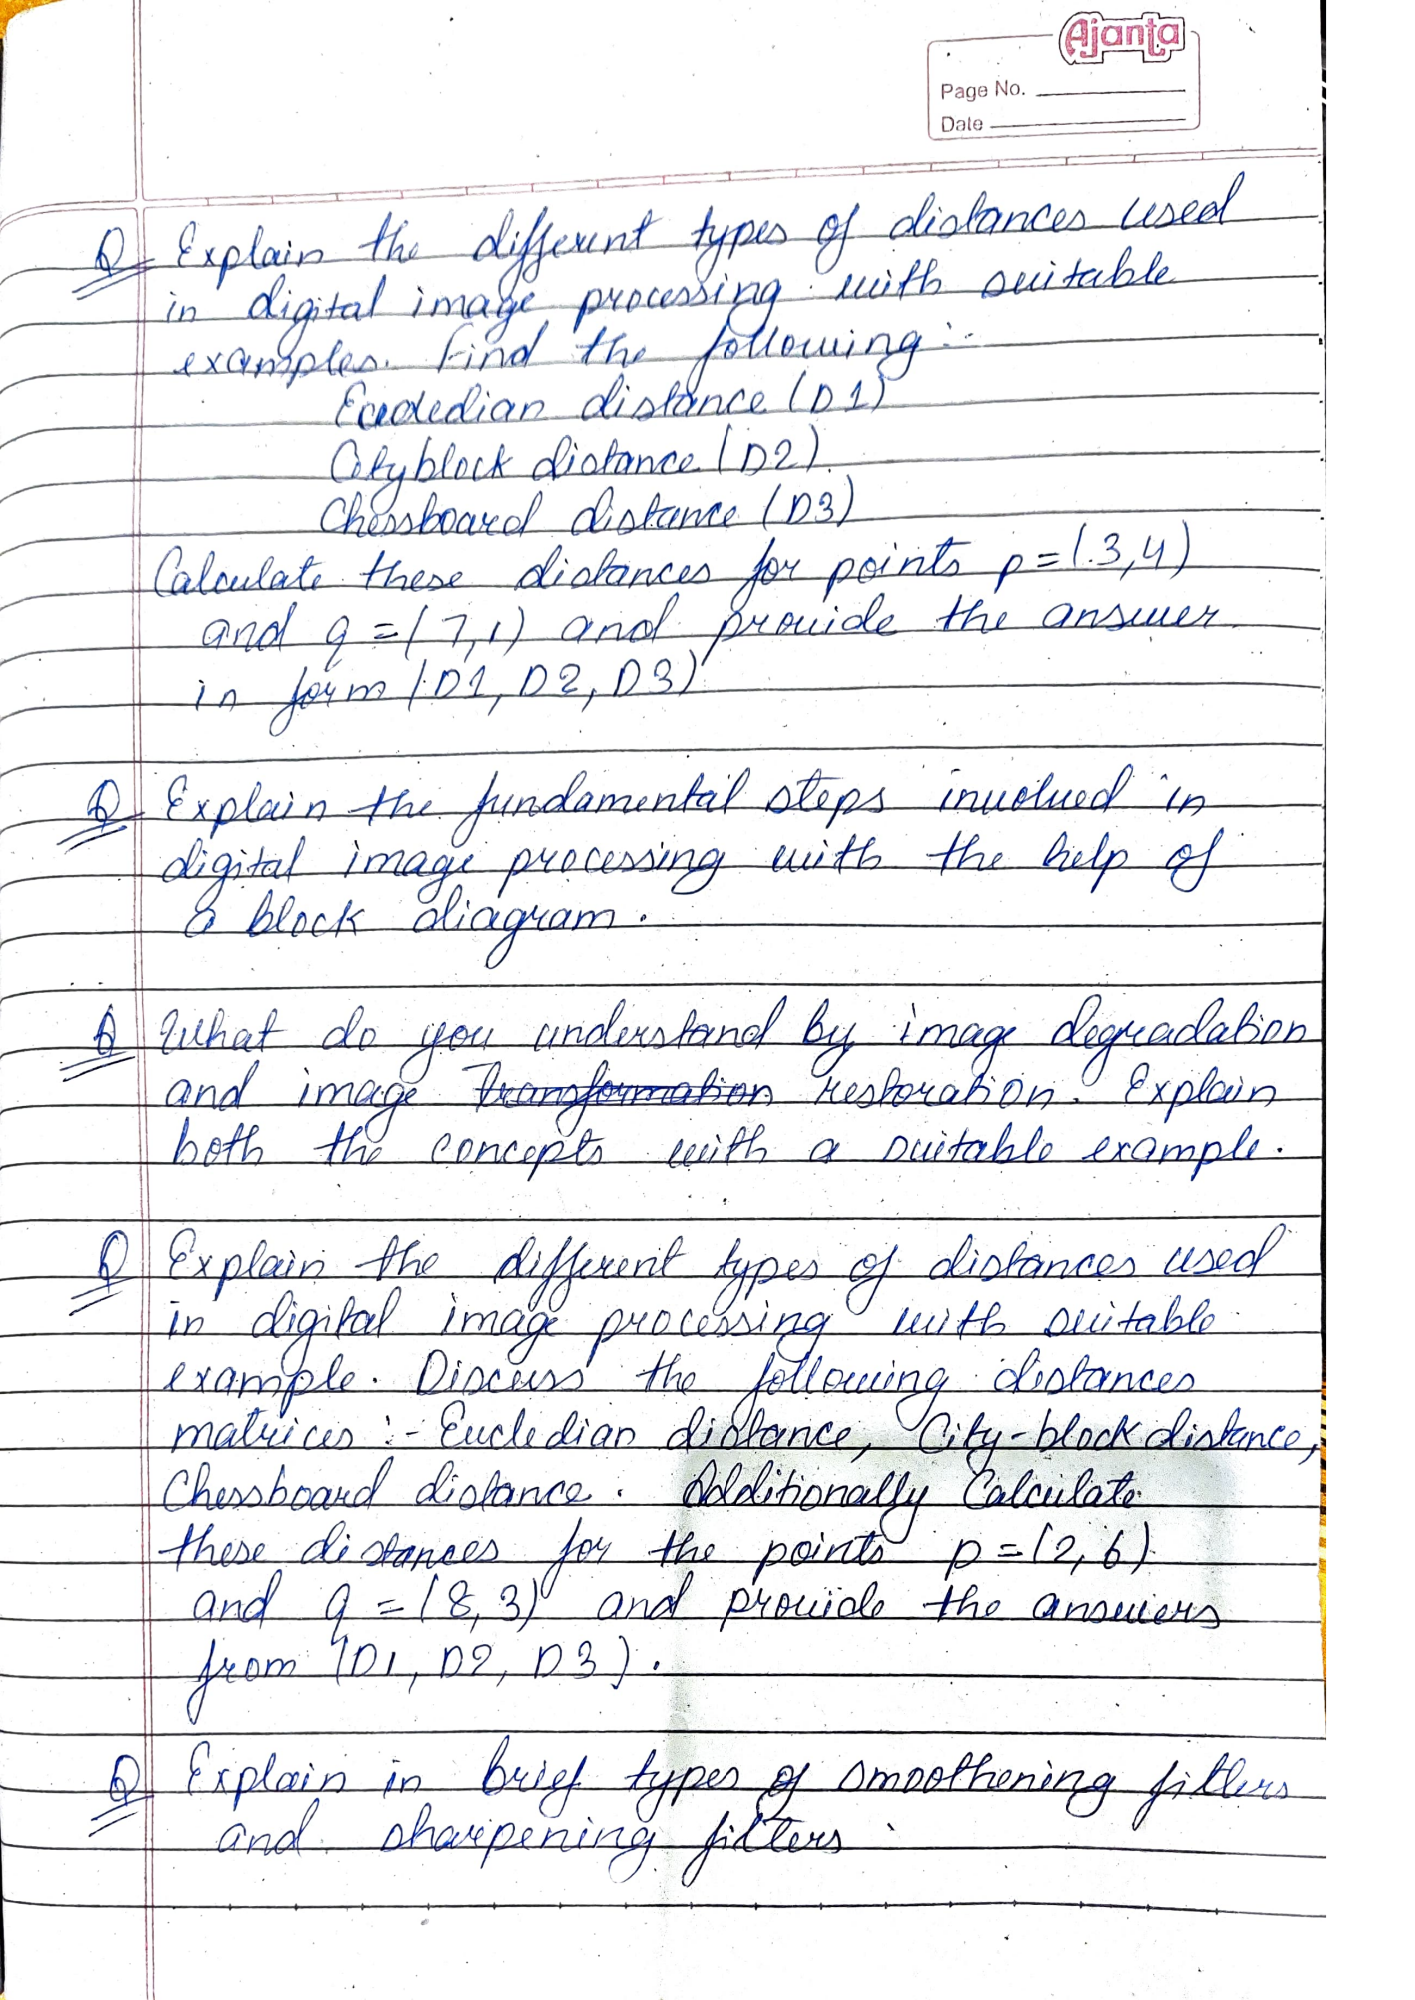 Ajanta
Page No.
Date
Q Explain the different types of distances used
in digital image processing with suitable
examples. Find the following :-
Eucledian distance (D1)
City block distance (D2)
Chessboard distance (D3)
Calculate these distances for points p = (3,4)
and q = (7,1) and provide the answer
in form (D1, D2, D3)
Q Explain the fundamental steps involved in
digital image processing with the help of
a block diagram.
Q What do you understand by image degradation
and image Transformation restoration. Explain
both the concepts with a suitable example.
Q Explain the different types of distances used
in digital image processing with suitable
example. Discuss the following distances
matrices :- Eucledian distance, City-block distance,
Chessboard distance. Additionally Calculate
these distances for the points p = (2,6)
and q = (8,3) and provide the answers
from (D1, D2, D3).
Q Explain in brief types of smoothening filters
and sharpening filters.